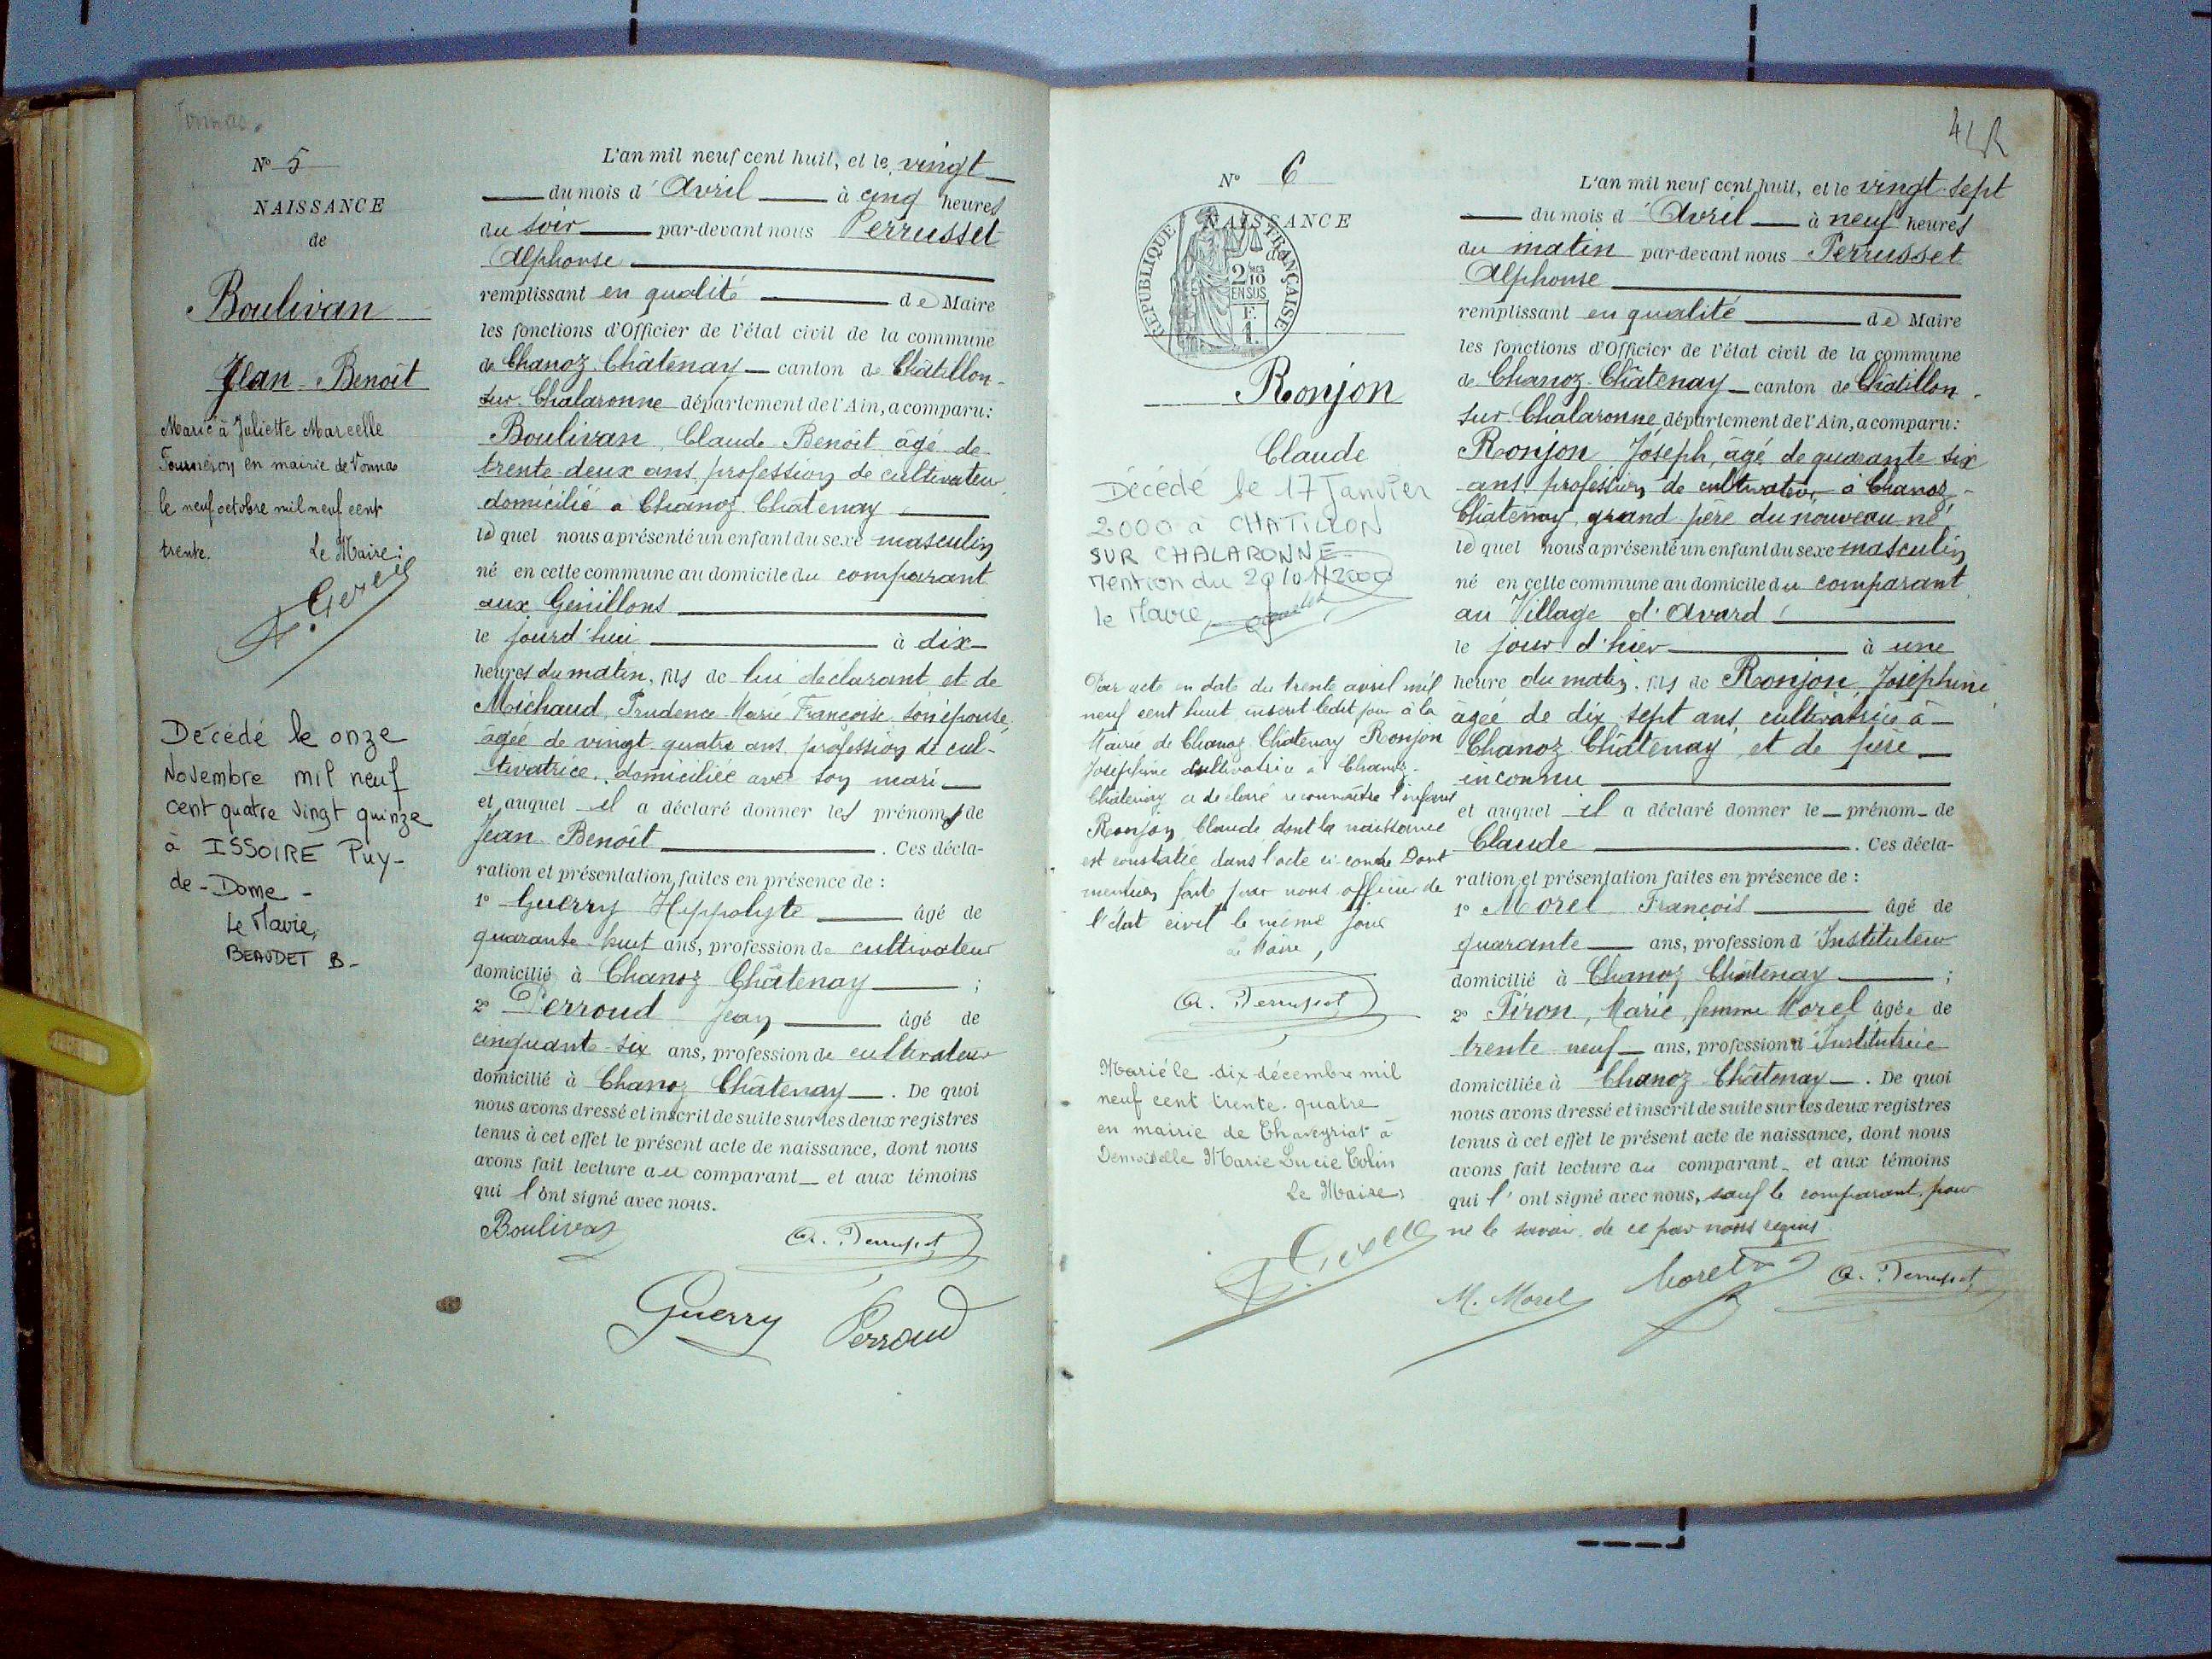 Nº 5
NAISSANCE
de
Boulivan
Jean-Benoît
Marié à Juliette Marcelle
en mairie de Vonnas
le neuf octobre mil neuf cent
trente. Le Maire:
Décédé le onze
Novembre mil neuf
cent quatre vingt quinze
à ISSOIRE Puy-
de-Dome -
Le Maire,
BEAUDET B-
L'an mil neuf cent huit, et le vingt
du mois d'Avril à cinq heures
du soir par-devant nous Perrusset
Alphonse
remplissant en qualité de Maire
les fonctions d'Officier de l'état civil de la commune
de Chanoz-Châtenay canton de Châtillon-
sur-Chalaronne département de l'Ain, a comparu:
Boulivan, Claude-Benoît, âgé de
trente-deux ans, profession de cultivateur
domicilié à Chanoz-Châtenay
lequel nous a présenté un enfant du sexe masculin
né en cette commune au domicile du comparant
aux Genillons
le jourd'hui à dix
heures du matin, fils de lui déclarant et de
Michaud, Prudence-Marie-Françoise, son épouse,
agée de vingt-quatre ans, profession de cul-
tivatrice, domiciliée avec son mari
et auquel il a déclaré donner les prénoms de
Jean-Benoît. Ces décla-
ration et présentation, faites en présence de :
1º Guerry Hippolyte âgé de
quarante-huit ans, profession de cultivateur
domicilié à Chanoz-Châtenay ;
2º Perroud Jean âgé de
cinquante-six ans, profession de cultivateur
domicilié à Chanoz-Châtenay. De quoi
nous avons dressé et inscrit de suite sur les deux registres
tenus à cet effet le présent acte de naissance, dont nous
avons fait lecture au comparant et aux témoins
qui l'ont signé avec nous.
Boulivan A. Perrusset
Guerry Perroud
Nº 6
NAISSANCE
de
RÉPUBLIQUE FRANÇAISE
2/10
EN SUS
F.
1.
Ronjon
Claude
Décédé le 17 Janvier
2000 à CHATILLON
SUR CHALARONNE
Mention du
le Maire
Par acte en date du trente avril mil
neuf cent huit inscrit ledit jour à la
Mairie de Chanoz-Châtenay Ronjon
Joséphine cultivatrice à Chanoz-
Châtenay a déclaré reconnaître l'enfant
Ronjon Claude dont la naissance
est constatée dans l'acte ci-contre Dont
mention faite par nous officier de
l'état civil le même jour
Le Maire,
A. Perrusset
Marié le dix décembre mil
neuf cent trente-quatre
en mairie de Chaveyriat à
Demoiselle Marie Lucie Colin
Le Maire,
L'an mil neuf cent huit, et le vingt-sept
du mois d'Avril à neuf heures
du matin par-devant nous Perrusset
Alphonse
remplissant en qualité de Maire
les fonctions d'Officier de l'état civil de la commune
de Chanoz-Châtenay canton de Châtillon-
sur-Chalaronne département de l'Ain, a comparu:
Ronjon Joseph, âgé de quarante six
ans, profession de cultivateur, à Chanoz-
Châtenay, grand père du nouveau né
lequel nous a présenté un enfant du sexe masculin
né en cette commune au domicile du comparant
au Village d'Avard
le jour d'hier à une
heure du matin, fils de Ronjon, Joséphine
âgée de dix-sept ans, cultivatrice à
Chanoz-Châtenay, et de père
inconnu
et auquel il a déclaré donner le prénom de
Claude. Ces décla-
ration et présentation faites en présence de :
1º Morel François âgé de
quarante ans, profession d'Instituteur
domicilié à Chanoz-Châtenay ;
2º Piron, Marie, femme Morel âgée de
trente neuf ans, profession d'Institutrice
domiciliée à Chanoz-Châtenay. De quoi
nous avons dressé et inscrit de suite sur les deux registres
tenus à cet effet le présent acte de naissance, dont nous
avons fait lecture au comparant et aux témoins
qui l'ont signé avec nous, sauf le comparant pour
ne le savoir, de ce par nous requis.
M. Morel Morel A. Perrusset